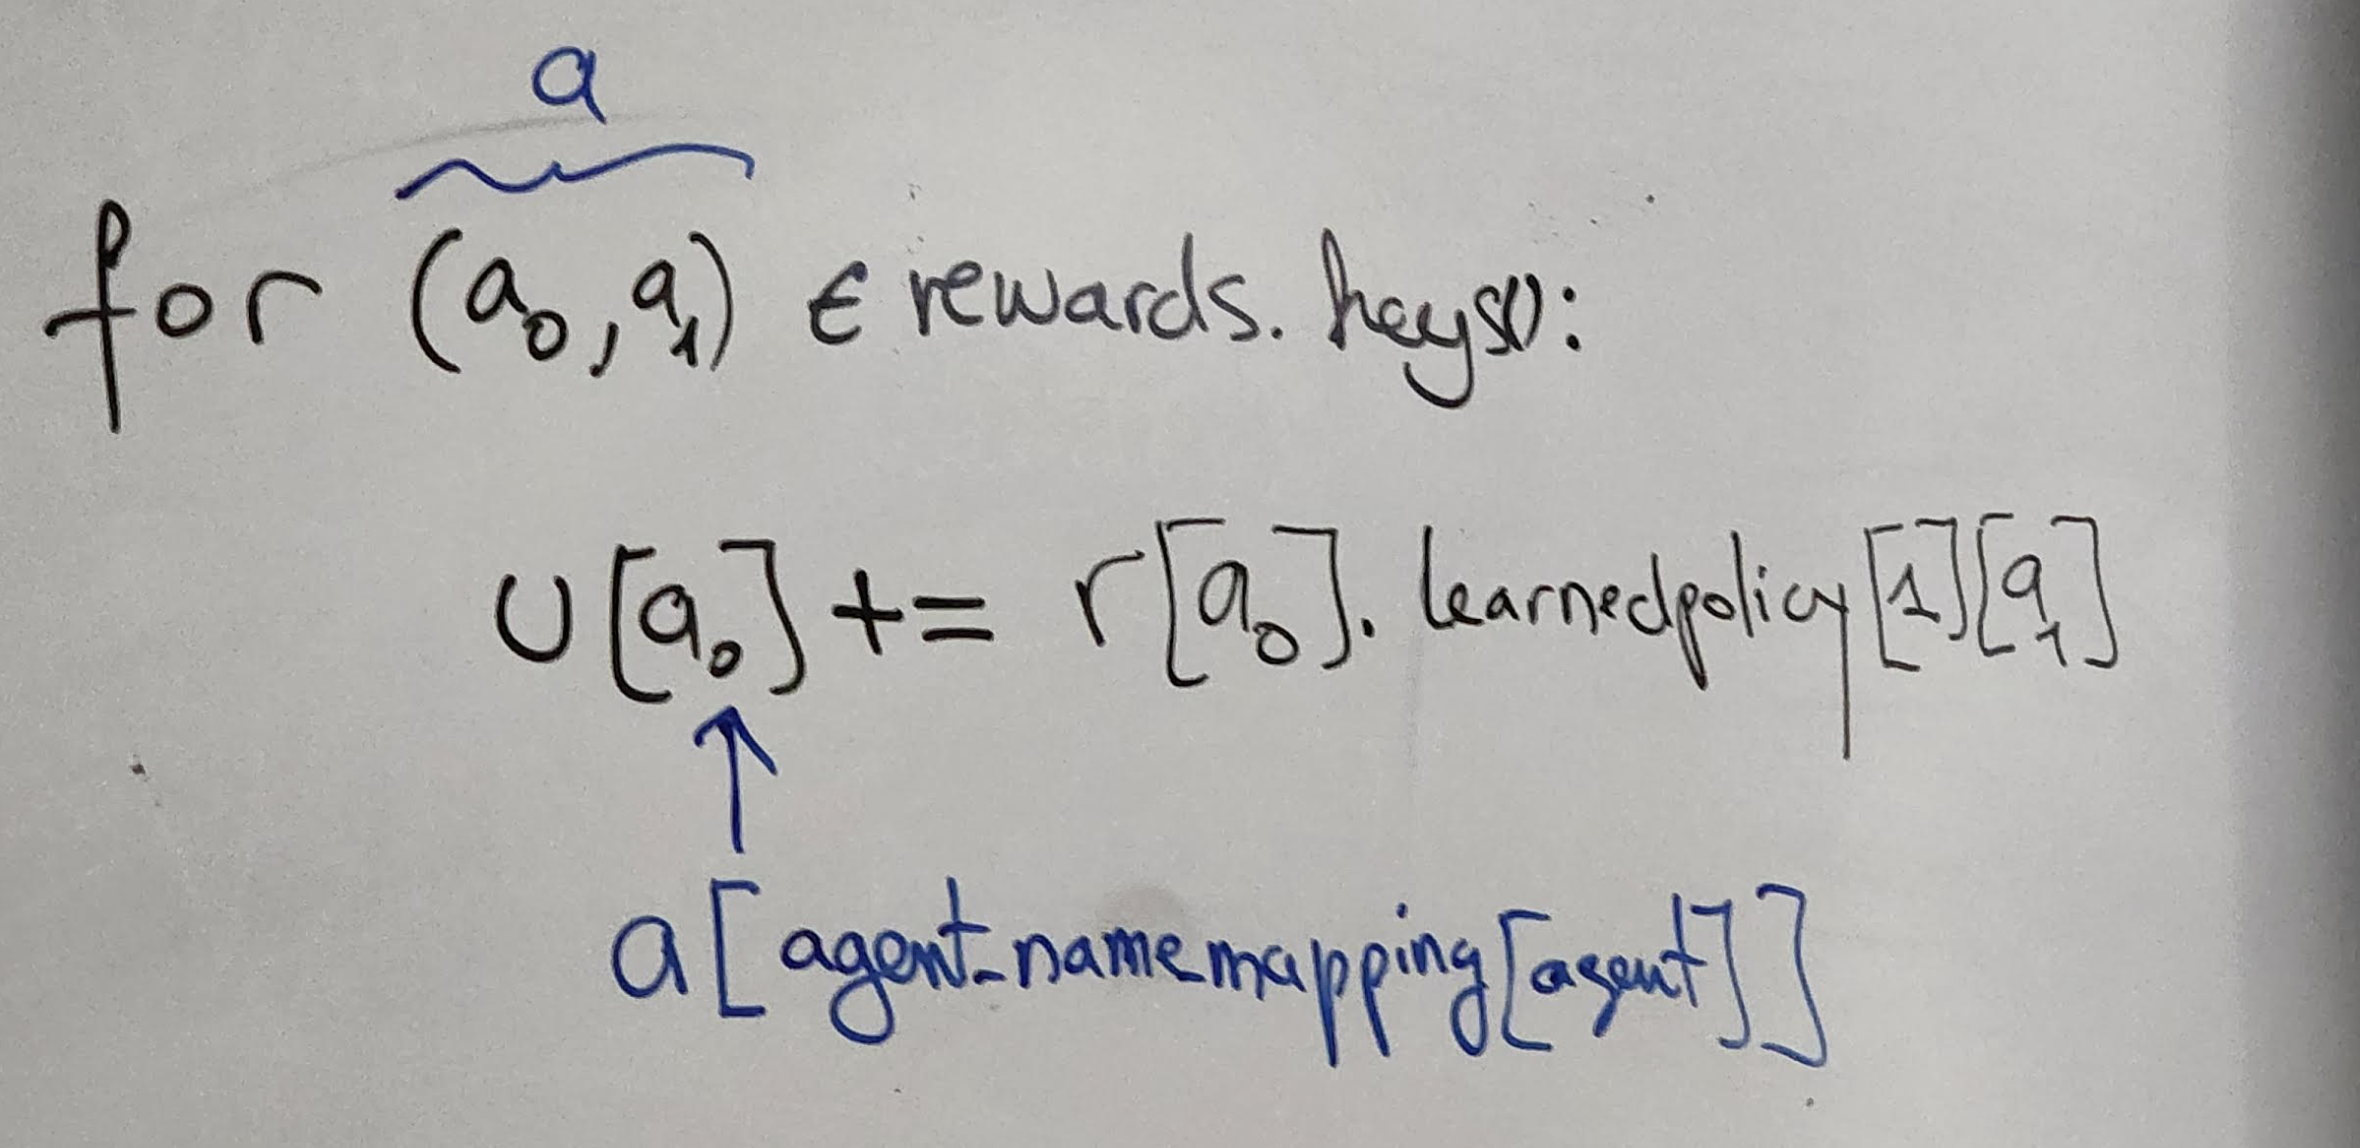 a
for (a₀, a₁) ∈ rewards. keys():
U[a₀] += r[a₀]. learnedpolicy[1][a₁]
↑
a[agent_name_mapping[agent]]